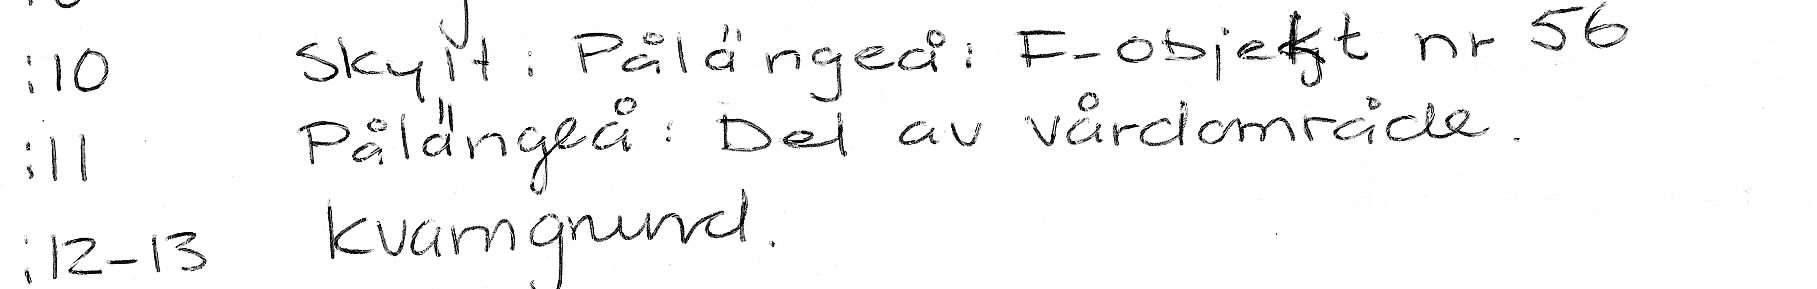 :10 Skylt: Pålängeå: F-objekt nr 56
:11 Pålängeå: Del av vårdområde.
:12-13 Kvarngrund.